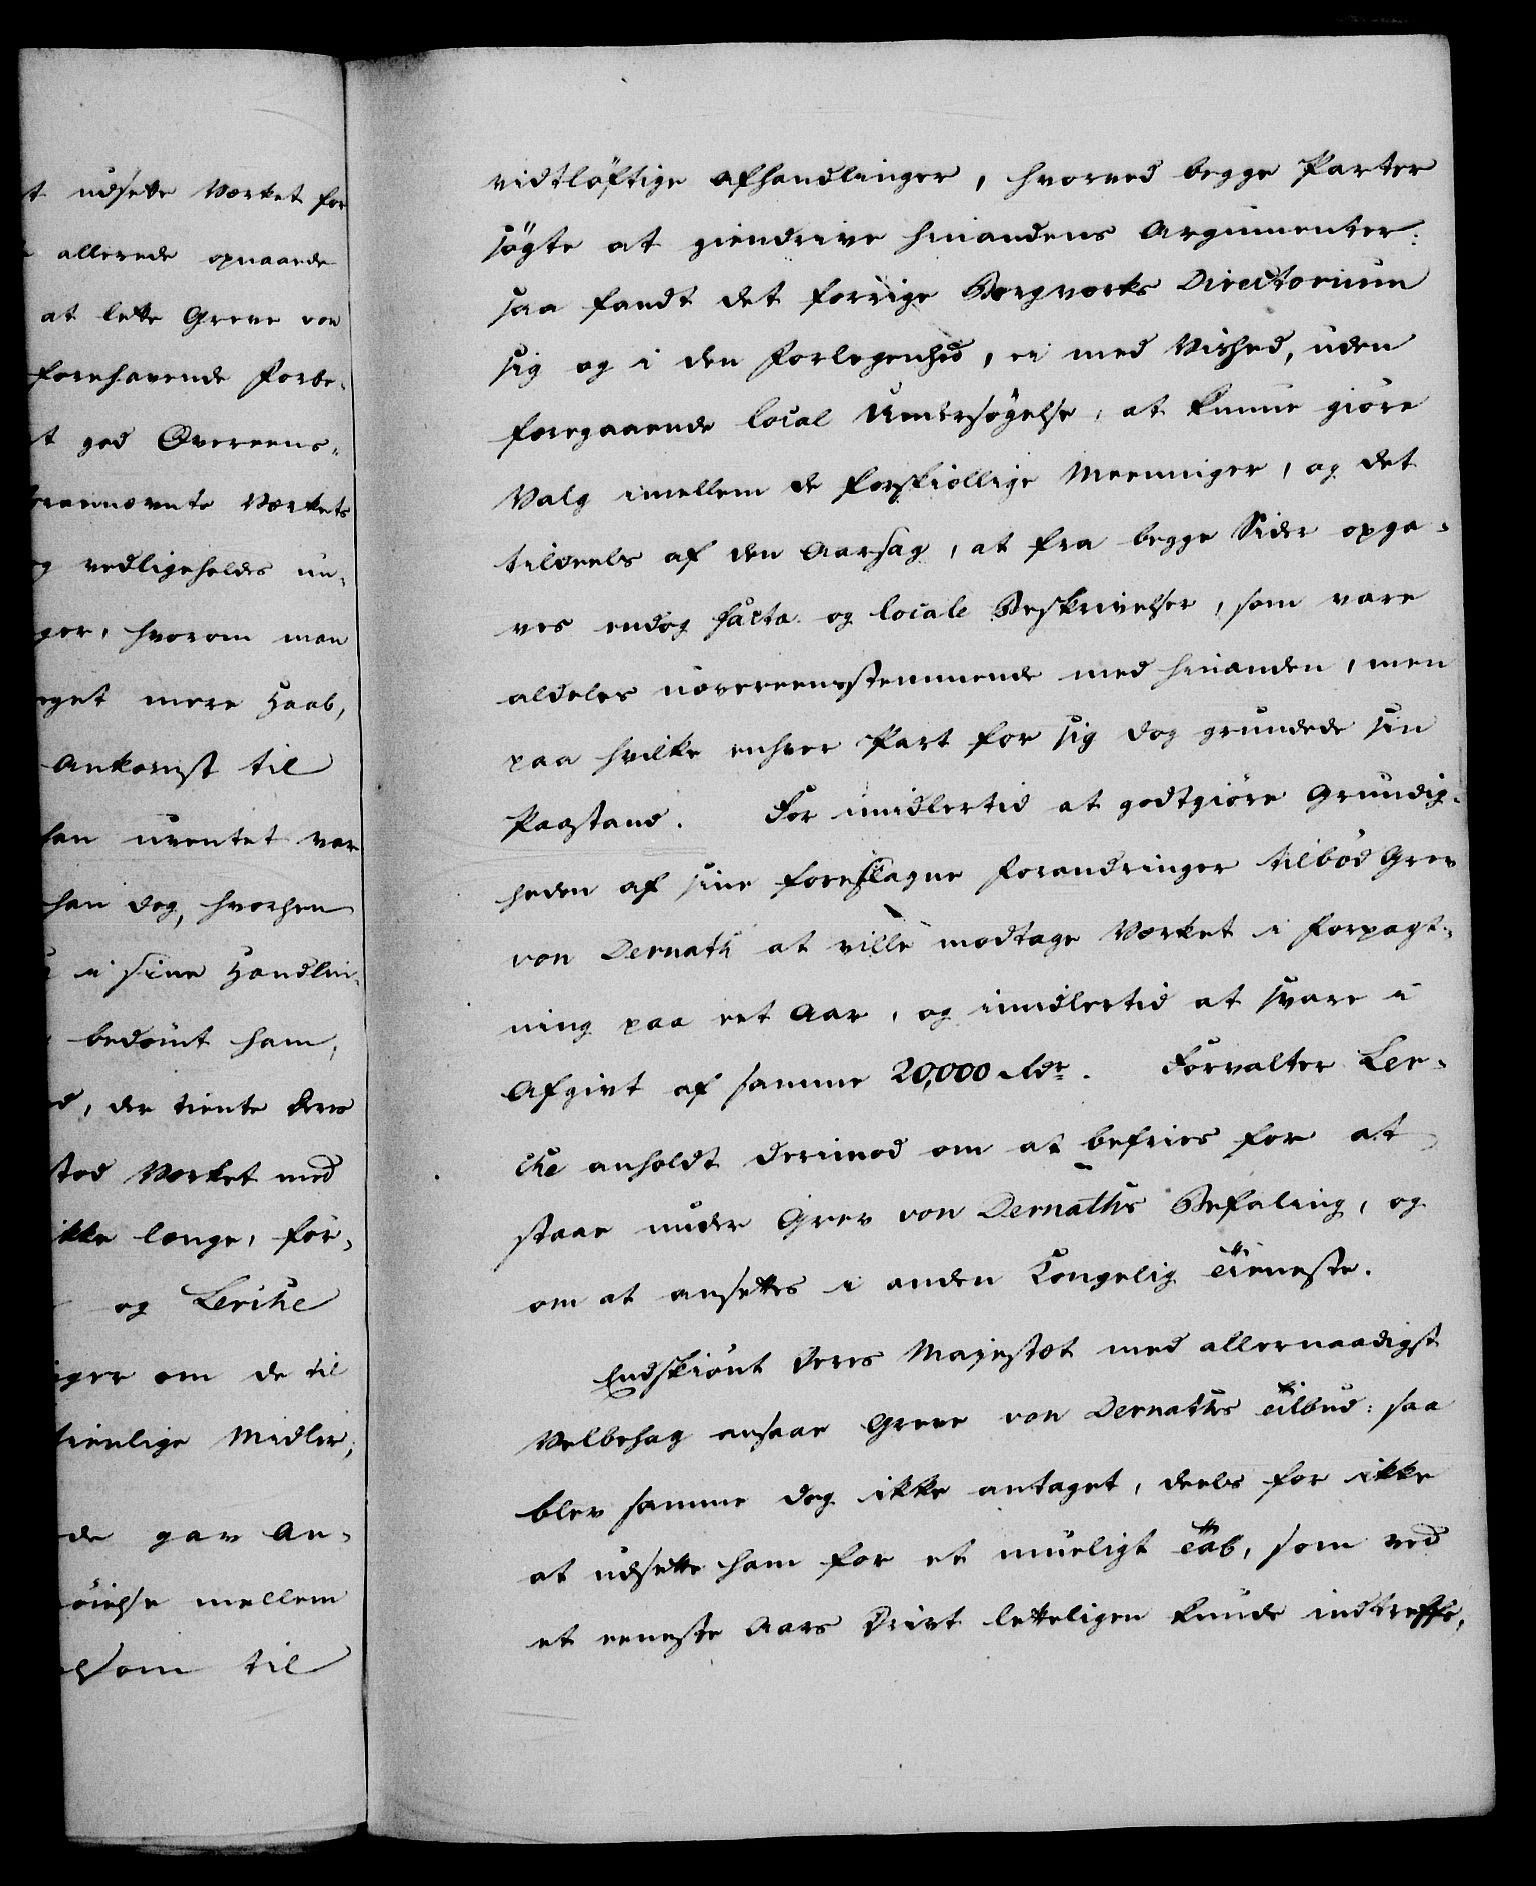 t udsætte Værket for
allerede opnaaede
at lette Greve von
forehavende Forbe-
t god Overeens-
ovennævnte Værkets
g vedligeholdes un-
ger, hvorom man
eget mere Haab,
Ankomst til
han uventet var
han dog, hvorhen
i sine Handlin-
bedömt ham,
d, der tiente Deres
stod Værket med
ikke længe, för-
og Lerche
iger om de til
tienlige Midler;
de gav An-
öielse mellem
som til
vidtlöftige Afhandlinger, hvorved begge Parter
sögte at giendrive hinandens Argumenter:
saa fandt det forrige Bergværks Directorium
sig og i den Forlegenhed, ei med Vished, uden
foregaaende local Undersögelse, at kunne giöre
Valg imellem de forskiellige Meeninger, og det
tildeels af den Aarsag, at fra begge Sider opga-
ves endog facta og locale Beskrivelser, som vare
aldeles uovereensstemmende med hinanden, men
paa hvilke enhver Part for sig dog grundede sin
Paastand. For imidlertid at godtgiöre Grundig-
heden af sine foreslagne Forandringer tilböd Grev
von Dernath at ville modtage Værket i Forpagt-
ning paa eet Aar, og imidlertid at svare i
Afgivt af samme 20,000 Rdr. Forvalter Ler-
che anholdt derimod om at befries for at
staae under Grev von Dernaths Befaling, og
om at ansættes i anden Kongelig Tieneste.
Endskiönt Deres Majestæt med allernaadigst
Velbehag ansaae Greve von Dernaths Tilbud: saa
blev samme dog ikke antaget, deels for ikke
at udsætte ham for et mueligt Tab, som ved
et eeneste Aars Drivt letteligen kunde indtreffe,